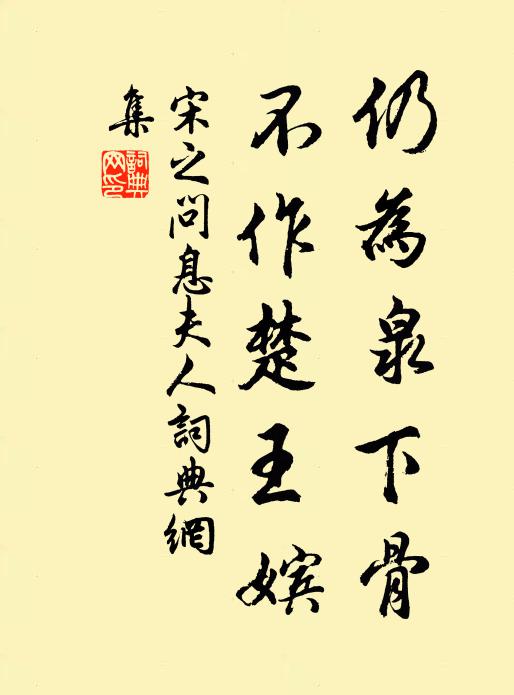 仍為泉下骨
不作楚王嬪
宋之問息夫人詞典網
集
詞典網印